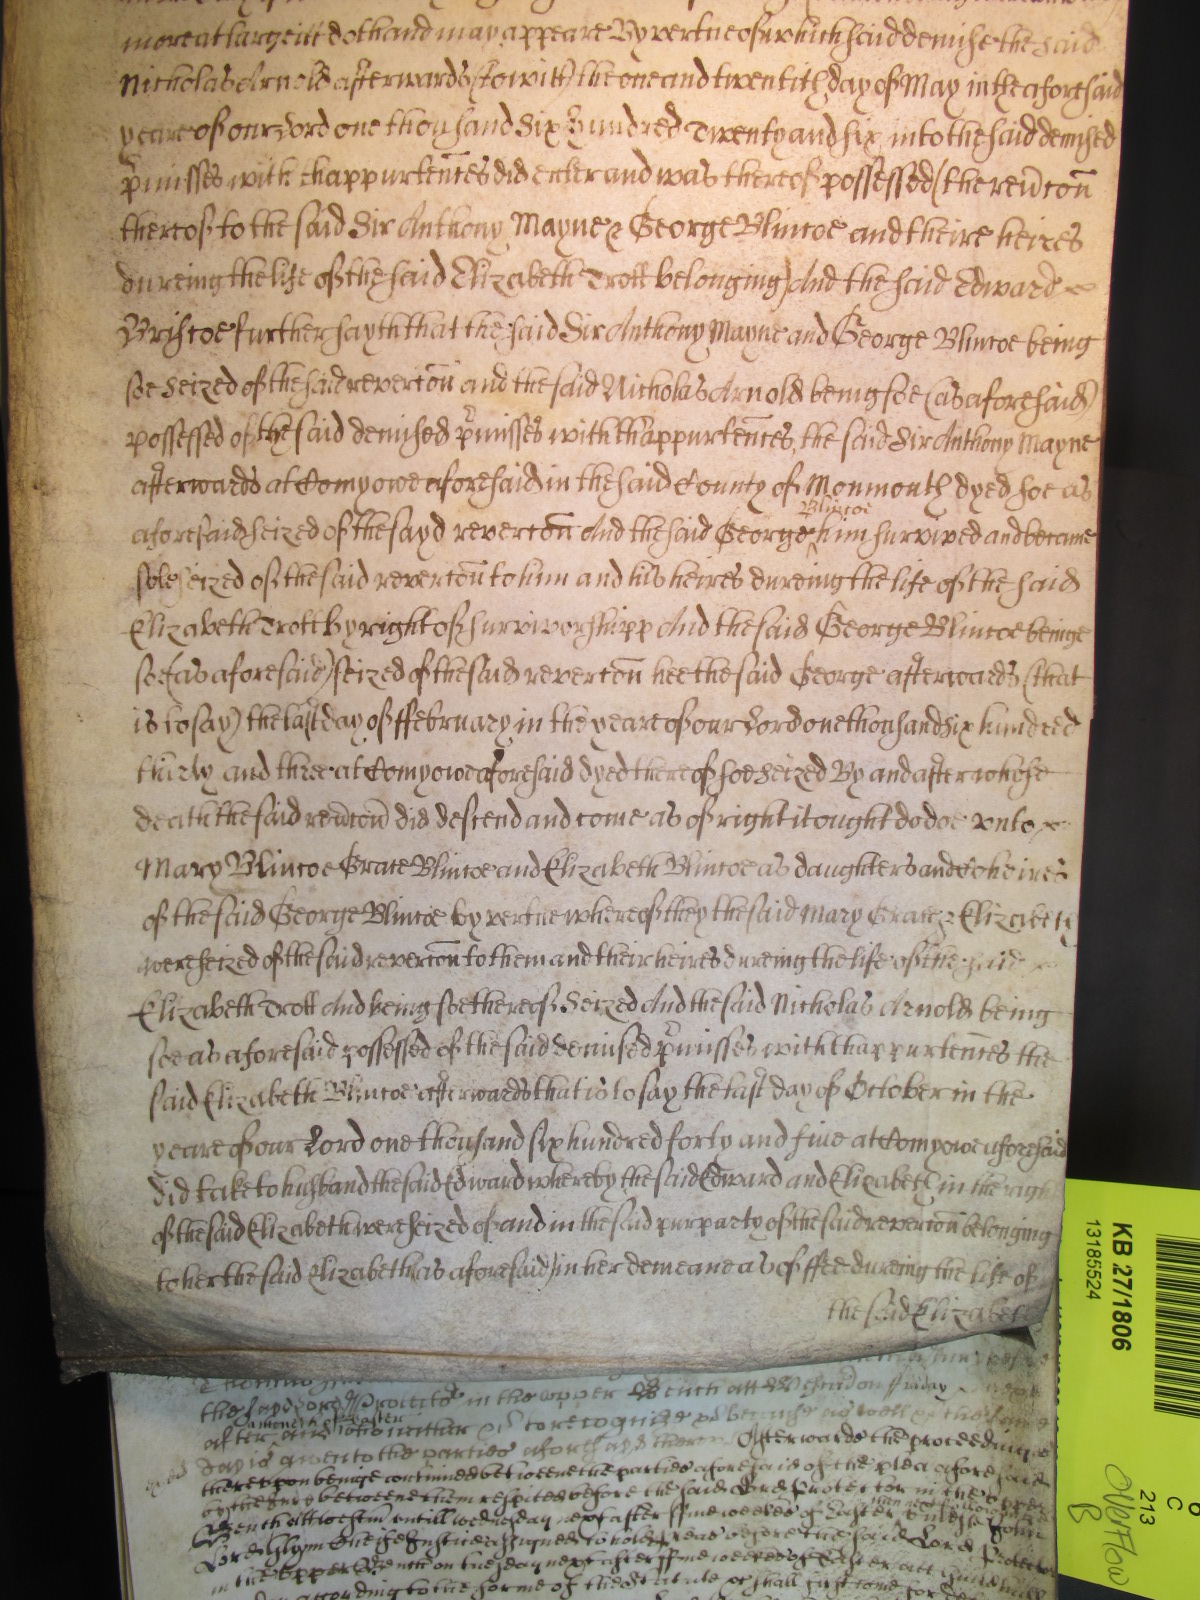 more at large itt doth and may appeare By vertue of which said demise the said
Nicholas Arnold afterwards (to witt) the one and twentith day of May in the aforesaid
yeare of our Lord one thousand Six Hundred Twenty and six into the said demised
p̃misses with thappurteñces did enter and was thereof possessed (the reuc̃on
thereof to the said Sir Anthony Mayne & George Blincoe and theire heires
dureing the life of the said Elizabeth Trott belonging) And the said Edward
Briscoe further sayth that the said Sir Anthony Mayne and George Blincoe being
soe seized of the said reverc̃on and the said Nicholas Arnold being soe (as aforesaid)
possessed of the said demised p̃misses with thappurteñces, the said Sir Anthony Mayne
afterwards at Comyowe aforesaid in the said County of Monmouth dyed soe as
Blincoe
aforesaid seized of the sayd reverc̃on And the said George ^ him survived and became
sole seized of the said reverc̃on to him and his heires dureing the life of the said
Elizabeth Trott by right of survivorshipp And the said George Blincoe beinge
soe (as aforesaid) seized of the said reverc̃on hee the said George afterwards (that
is to say) the last day of ffebruary in the yeare of our Lord one thousand six hundred
thirty and three at Comyowe aforesaid dyed thereof soe seized By and after whose
death the said reuc̃on did descend and come as of right it ought to doe vnto
Mary Blincoe Grace Blincoe and Elizabeth Blincoe as daughters and Coheires
of the said George Blincoe by vertue whereof they the said Mary Grace & Elizabeth
were seized of the said reverc̃on to them and their heires dureing the life of the said
Elizabeth Trott And being soe thereof seized And the said Nicholas Arnold being
soe as aforesaid possessed of the said demised p̃misses with thappurteñces the
said Elizabeth Blincoe afterwards that is to say the last day of October in the
yeare of our Lord one thousand six hundred forty and fiue at Comyowe aforesaid
did take to husband the said Edward whereby the said Edward and Elizabeth in the right
of the said Elizabeth were seized of and in the said purparty of the said reverc̃on belonging
to her the said Elizabeth (as aforesaid) in her demeane as of ffee dureing the life of
the said Elizabeth
the sayd Lord Protector in the upper Bench att
a moneth of Easter
after
to the parties aforesayd there Afterwards the proceedings
therevpon beinge continued betweene the parties aforesaid of the plea aforesaid
by the Jury betweene them respited before the said Lord Protector in the Upper
Bench att Westm̃ untill wednesday next after ffiue weekes of Easter
Lord Glynn Chiefe Justice assigned to hold pleas before the said Lord Protector
in the Upper Bench on tuesday next after ffiue weekes of Easter att
according to the forme of the Statute &c shall first come
KB 27/1806
13185524
213
C
6
Overflow
B